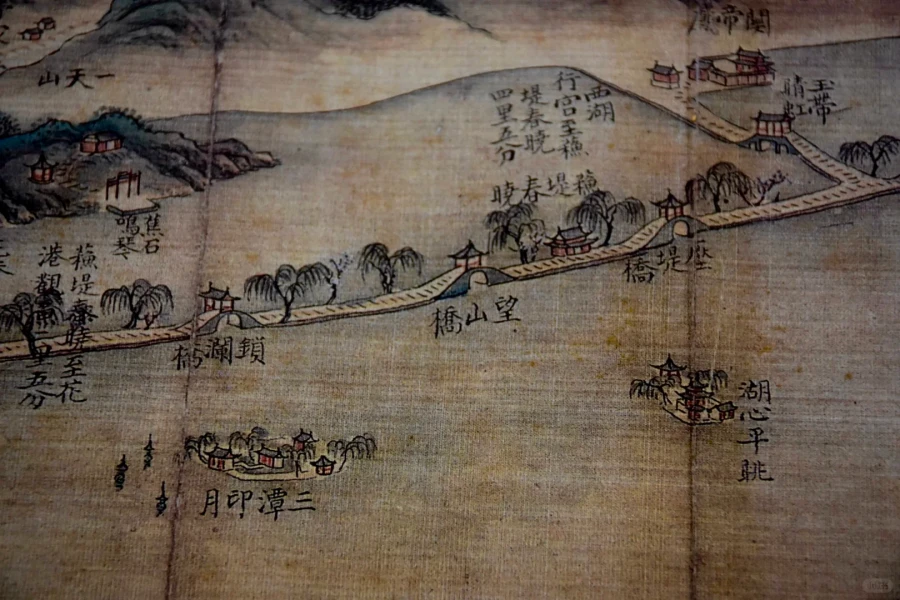 關帝廟
一天山
玉帶
晴虹
西湖
行宮至蘓
堤春曉
四里五分
蘓堤春曉
蕉石
鳴琴
蘓堤春曉至花
港觀魚一里五分
壓堤橋
望山橋
鎖瀾橋
湖心平眺
三潭印月